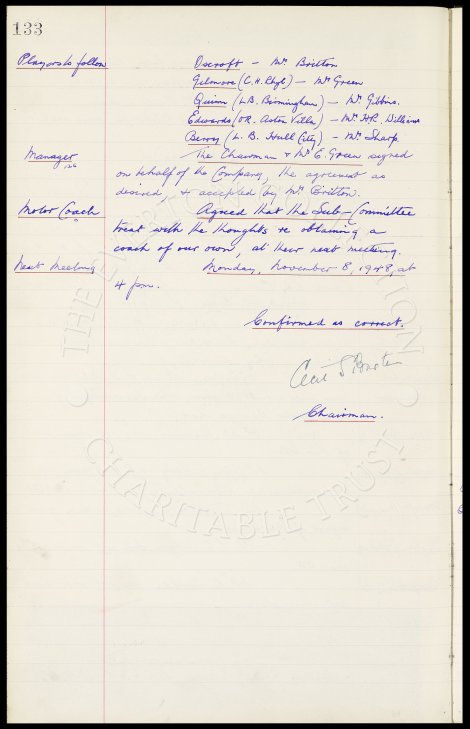 133
Players to follow Oscroft - Mr. Britton
Gilmore (C.H. Rhyl) - Mr Green
Quinn (L.B. Birmingham) - Mr. Gibbins.
Edwards (O.R. Aston Villa) - Mr. H.R. Williams
Berry (L.B. Hull City) - Mr. Sharp
Manager The Chairman & Mr E. Green signed
on behalf of the Company, the agreement as
desired, & accepted by Mr. Britton.
Motor Coach Agreed that the Sub-Committee
treat with the thoughts re obtaining a
coach of our own, at their next meeting.
Next Meeting Monday, November 8, 1948, at
4 pm.
Confirmed as correct.
Cecil S Baxter
Chairman.
CHARITABLE TRUST